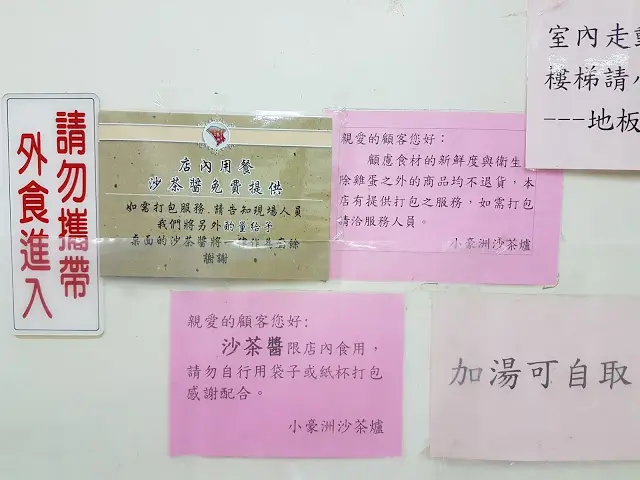 請勿攜帶
外食進入
店內用餐
沙茶醬免費提供
如需打包服務.請告知現場人員
我們將另外酌量給予
桌面的沙茶醬將
謝謝
親愛的顧客您好：
顧慮食材的新鮮度與衛生
除雞蛋之外的商品均不退貨，本
店有提供打包之服務，如需打包
請洽服務人員。
小豪洲沙茶爐
室內走動
樓梯請小
---地板
親愛的顧客您好:
沙茶醬限店內食用，
請勿自行用袋子或紙杯打包
感謝配合。
小豪洲沙茶爐
加湯可自取